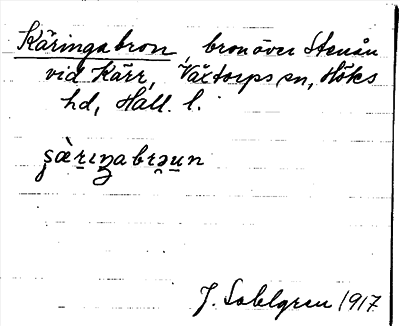 Käringabron, bron över Stenån
vid Kärr, Växtorps sn, Höks
hd, Hall. l.
şæ̀rıŋabrəun
J. Sahlgren 1917